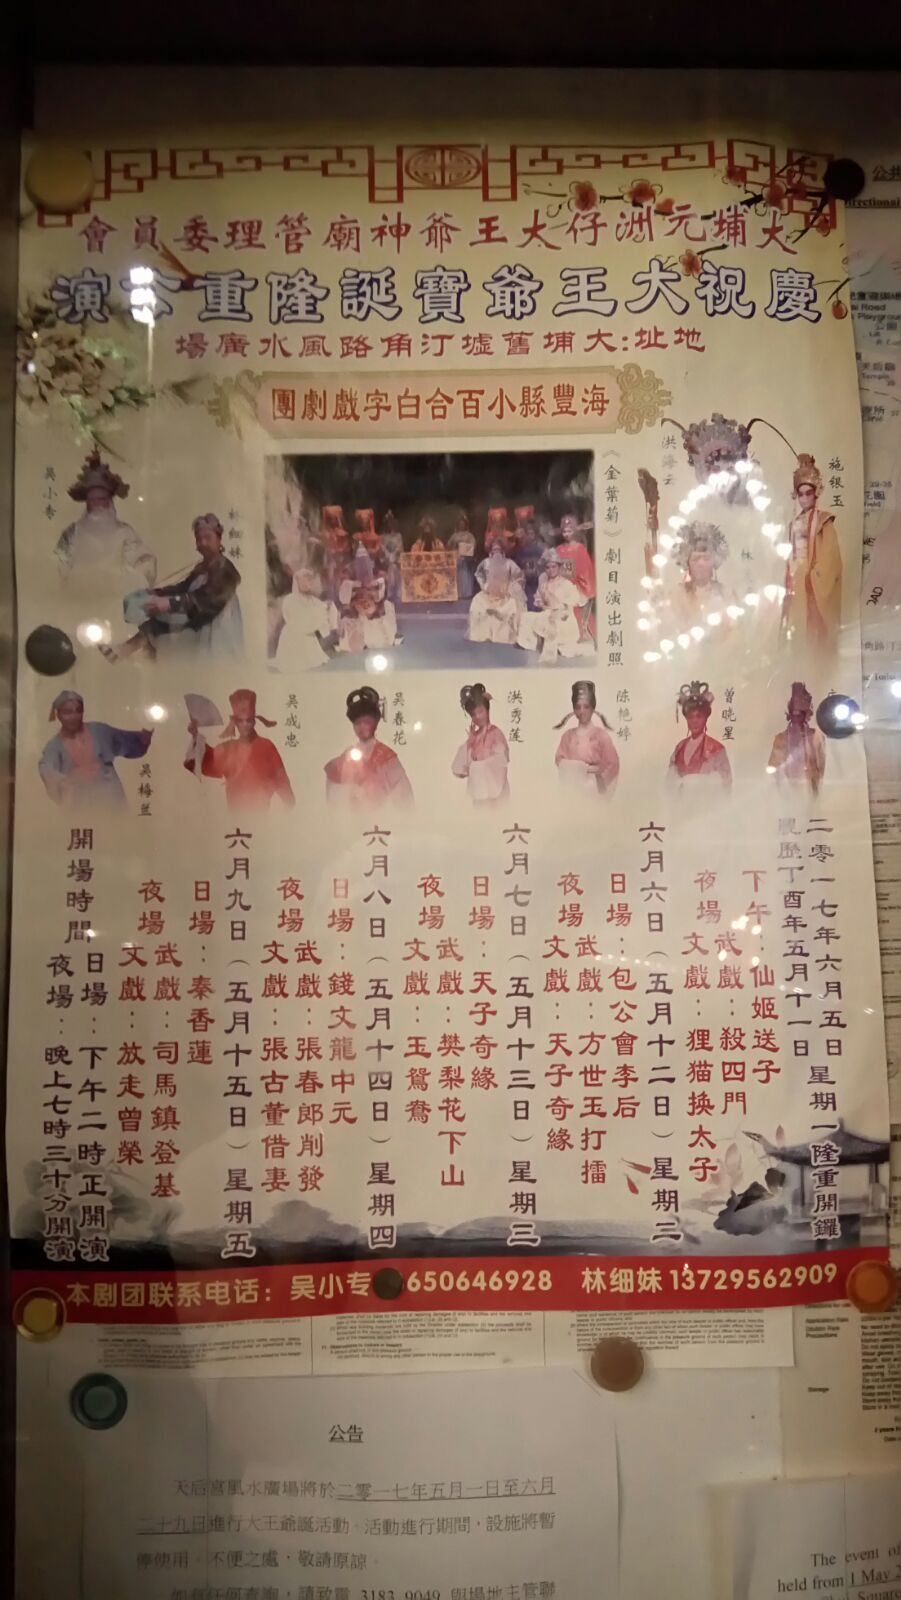 大埔元洲仔大王爺神廟管理委員會
慶祝大王爺寶誕隆重
演
地址:大埔舊墟汀角路風水廣場
海豐縣小百合白字戲劇團
吳小专
林细妹
《金葉菊》劇目演出劇照
洪海云
林
施银玉
吴梅兰
吴成忠
吴春花
洪秀莲
陈艳婷
曾晓星
二零一七年六月五日星期一隆重開鑼
農歷丁酉年五月十一日
下午:仙姬送子
夜場
武戲:殺四門
文戲:狸猫换太子
六月六日(五月十二日)星期二
日場:包公會李后
夜場
武戲:方世玉打擂
文戲:天子奇緣
六月七日(五月十三日)星期三
日場:天子奇緣
夜場
武戲:樊梨花下山
文戲:玉鴛鴦
六月八日(五月十四日)星期四
日場:錢文龍中元
夜場
武戲:張春郎削發
文戲:張古董借妻
六月九日(五月十五日)星期五
日場:秦香蓮
夜場
武戲:司馬鎮登基
文戲:放走曾榮
開場時間
日場:下午二時正開演
夜場:晚上七時三十分開演
本剧团联系电话:吴小专 650646928 林细妹 13729562909
公告
天后宮風水廣場將於二零一七年五月一日至六月
二十九日進行大王爺誕活動。活動進行期間,設施將暫
停使用。不便之處,敬請原諒。
如有任何查詢,請致電 3183 9049 與場地主管聯
The event of
held from 1 May 2